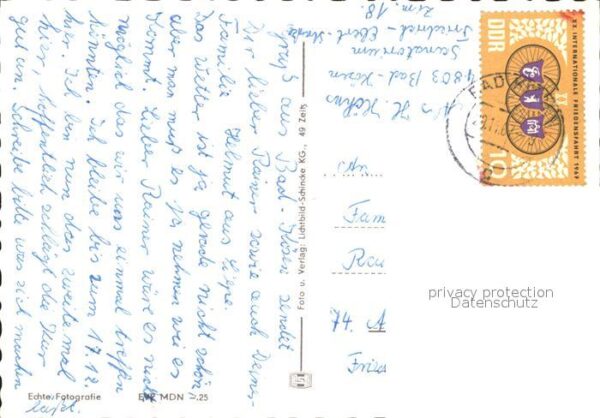 A/s H. Höhns
4803 Bad Kösen
Sanatorium
Friedrich-Ebert-
Zim. 18.
Gruß aus Bad-Kösen sendet
Dir lieber Rainer sowie auch Deiner
Familie Helmut aus
Das Wetter ist ja gerade nicht schön
aber man muß es ja nehmen wie es
kommt. Lieber Rainer wäre es nicht
möglich das wir uns einmal treffen
könnten. Ich bleibe bis zum 17.12.
hier. Ich bin nun das zweite mal
hier, Hoffentlich schlägt die Kur
gut an. Schreibe bitte was sich machen
läßt.
Foto u. Verlag: Lichtbild-Schincke KG., 49 Zeitz
Echte Fotografie EVP MDN -.25
An
Fam
74. A
XX. INTERNATIONALE FRIEDENSFAHRT 1967
DDR
XX
10
privacy protection
Datenschutz